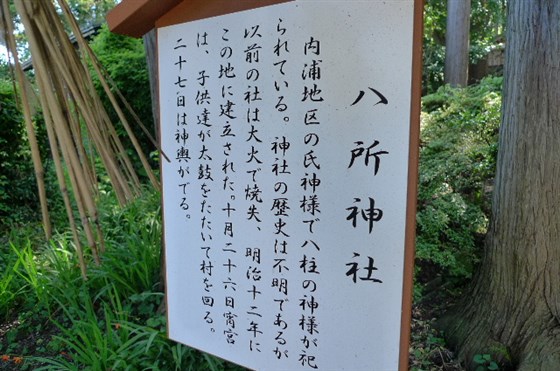 八所神社
内浦地区の氏神様で八柱の神様が祀
られている。神社の歴史は不明であるが
以前の社は大火で焼失、明治十二年に
この地に建立された。十月二十六日宵宮
は、子供達が太鼓をたたいて村を回る。
二十七日は神輿がでる。